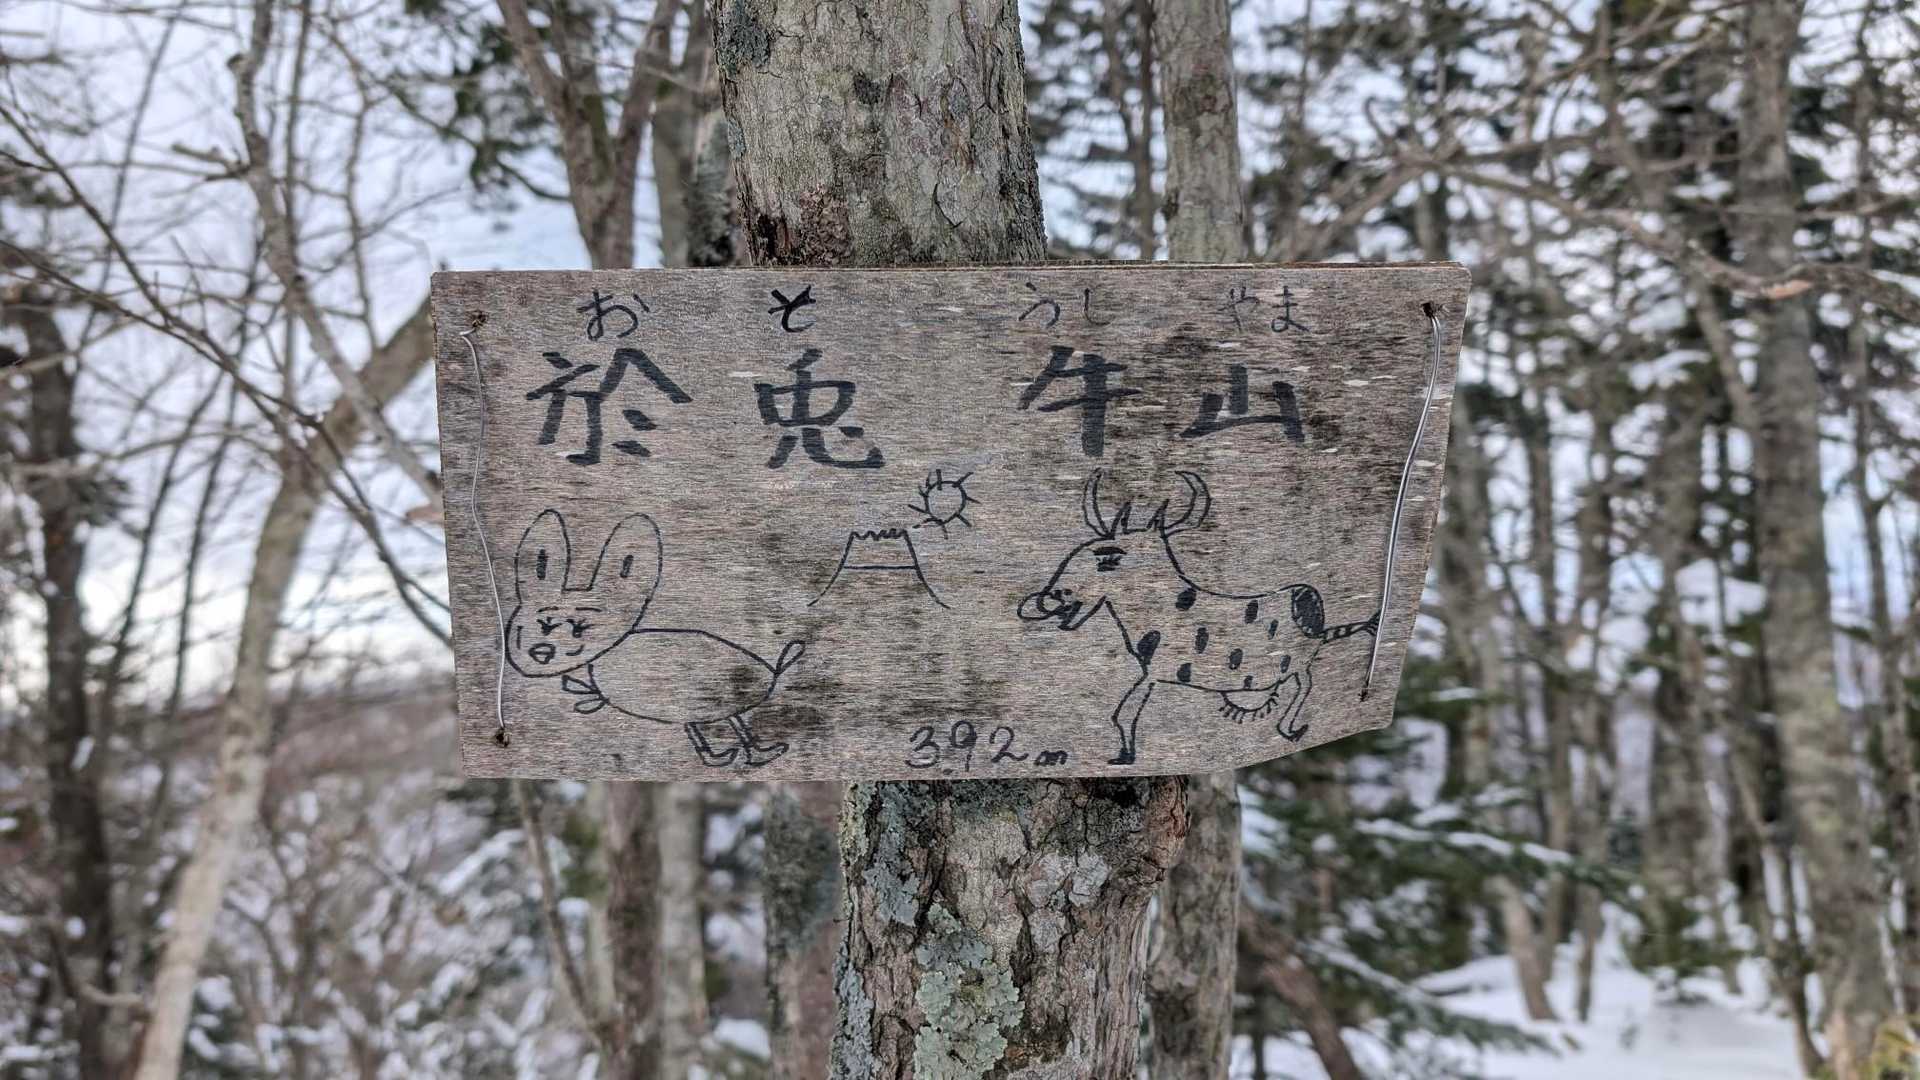 お そ うし やま
於兎牛山
392m